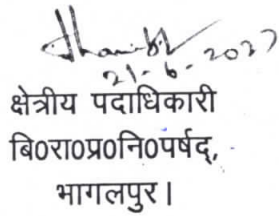 21-6-2027
क्षेत्रीय पदाधिकारी
बि0रा0प्र0नि0पर्षद्,
भागलपुर।